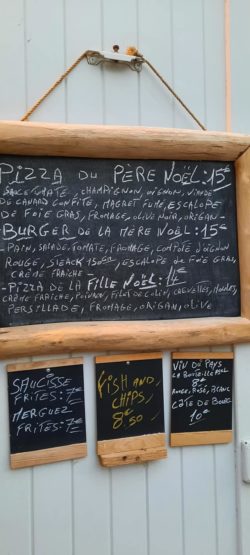 PIZZA DU PÈRE NOËL: 15€
SAUCE TOMATE, CHAMPIGNON, OIGNON, VIANDE
DE CANARD CONFITE, MAGRET FUMÉ, ESCALOPE
DE FOIE GRAS, FROMAGE, OLIVE NOIR, ORIGAN-
-BURGER DE LA MÈRE NOËL: 15€
-PAIN, SALADE, TOMATE, FROMAGE, COMPOTÉ D'OIGNON
ROUGE, STEACK 150GR, ESCALOPE DE FOIE GRAS,
CRÈME FRAICHE-
-PIZZA DE LA FILLE NOËL: 14€
CRÈME FRAICHE, POIVRON, FILET DE COLIN, CREVETTES, MOULES,
PERSILLADE, FROMAGE, ORIGAN, OLIVE
SAUCISSE
FRITES: 7€
MERGUEZ
FRITES: 7€
FISH AND
CHIPS
8€50
VIN DE PAYS
LA BOUTEILLE
8€
ROUGE, ROSÉ, BLANC
CÔTE DE BOURG
10€